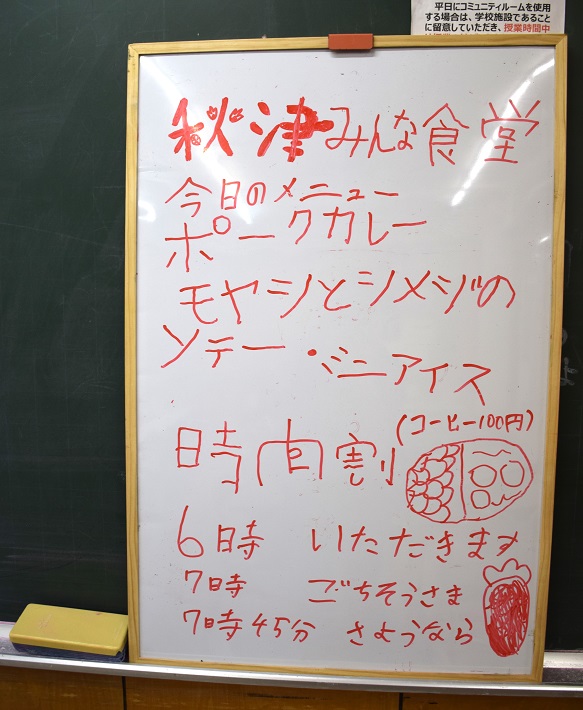 平日にコミュニティルームを使用
する場合は、学校施設であること
に留意していただき、授業時間中
秋津みんな食堂
今日のメニュー
ポークカレー
モヤシとシメジの
ソテー・ミニアイス
(コーヒー100円)
時間割
6時 いただきます
7時 ごちそうさま
7時45分 さようなら